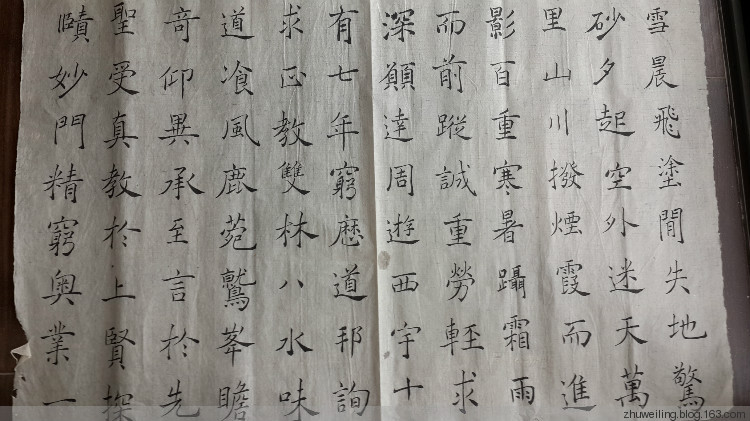 雪晨飛塗閒失地驚
砂夕起空外迷天萬
里山川撥煙霞而進
影百重寒暑躡霜雨
而前蹤誠重勞輕求
深願達周遊西宇十
有七年窮歷道邦詢
求正教雙林八水味
道湌風鹿菀鷲峯瞻
奇仰異承至言於先
聖受真教於上賢探
賾妙門精窮奧業一
zhuweiling.blog.163.com